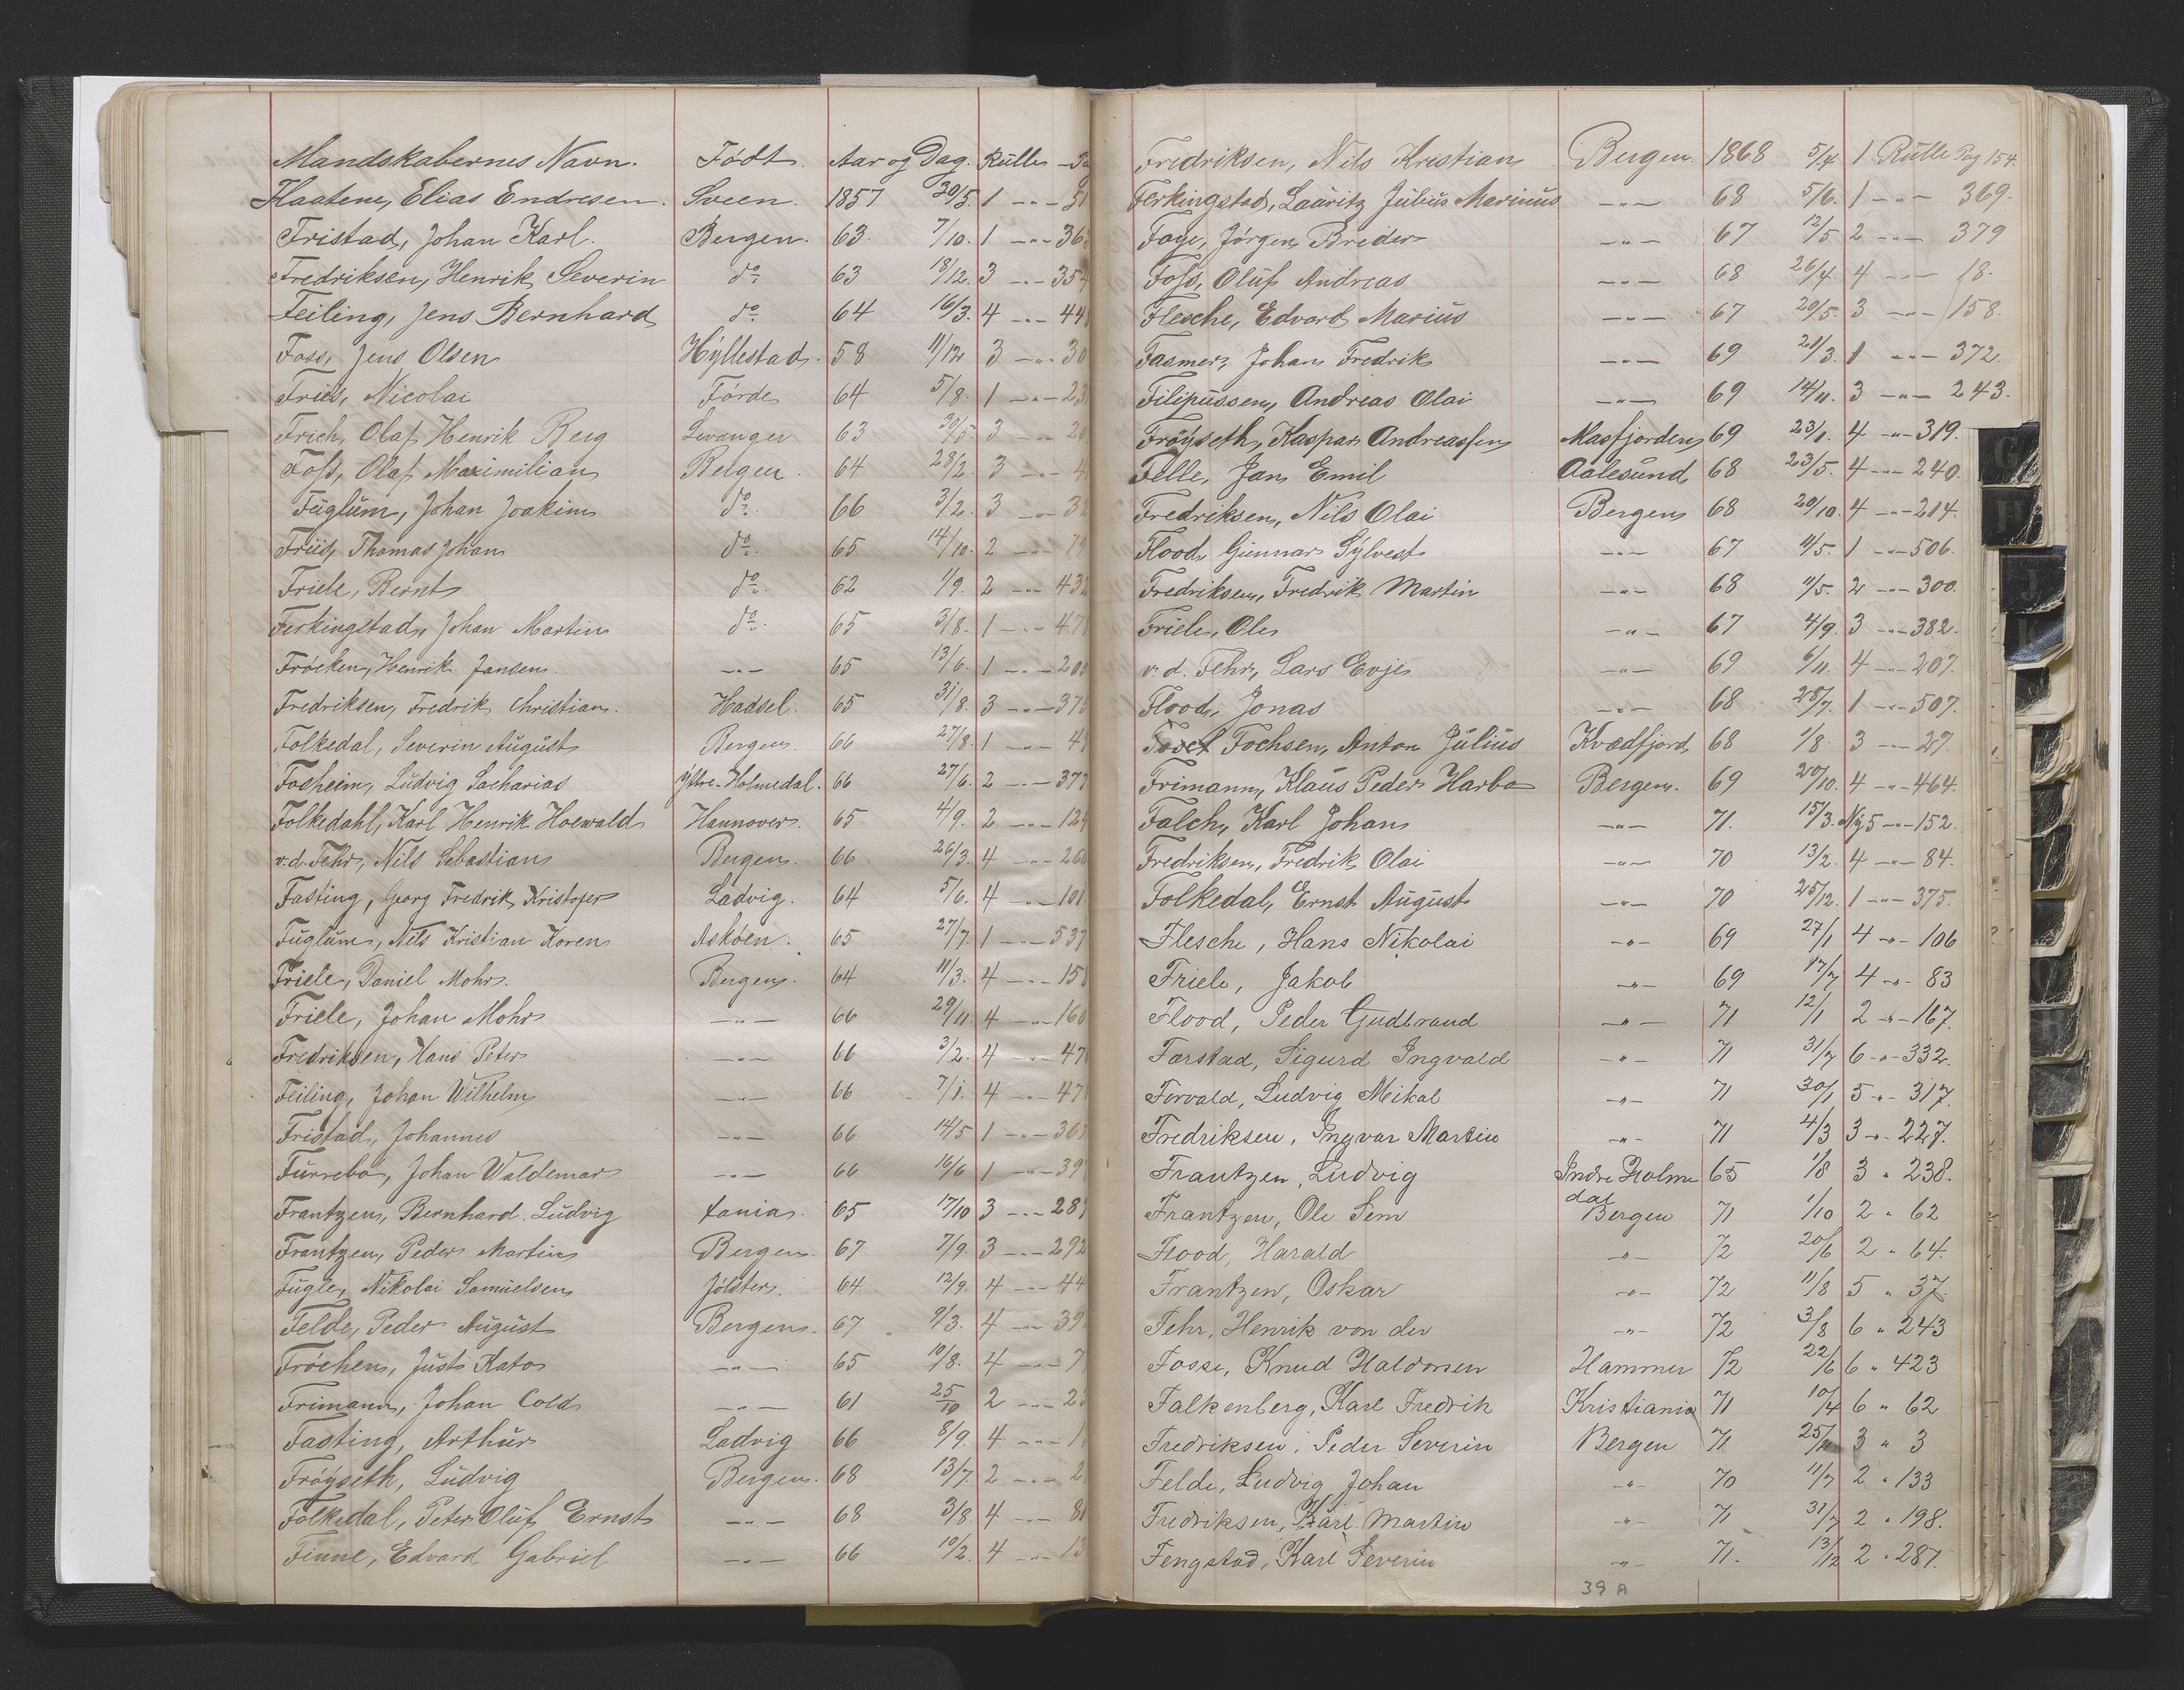 Mandskabernes Navn. Født. Aar og Dag. Rulle - Pa
Flaatene, Elias Endresen. Sveen. 1857 30/5. 1 -"-
Fristad, Johan Karl. Bergen. 63. 7/10. 1 -"- 36
Fredriksen, Henrik Severin do 63 18/12. 3 -"- 354
Feiling, Jens Bernhard do 64 16/3. 4 -"- 44
Foss, Jens Olsen Hyllestad. 58 11/12 3 -"- 30
Friis, Nicolai Førde 64 5/8. 1 -"- 23
Frich, Olaf Henrik Berg Levanger 63 30/5 3 -"- 20
Foss, Olaf Maximilian Bergen. 64 28/2. 3 -"- 4
Fuglum, Johan Joakim do 66 3/2. 3 -"- 32
Friis, Thomas Johan do 65 14/10. 2 -"- 19
Friele, Bernt do 62 1/9. 2 -"- 432
Ferkingstad, Johan Martin do 65 3/8. 1 -"- 47
Frøchen, Henrik Jansen. -"- 65 13/6. 1 -"- 200
Fredriksen, Fredrik Christian. Hadsel. 65 31/8. 3 -"- 375
Folkedal, Severin August Bergen. 66 27/8. 1 -"- 4
Fosheim, Ludvig Sacharias Yttre-Holmedal. 66 27/6. 2 -"- 377
Folkedahl, Karl Henrik Hoewald Hannover. 65 4/9. 2 -"- 124
v.d. Fehr, Nils Sebastian Bergen. 66 26/3. 4 -"- 260
Fasting, Georg Fredrik Kristofer Ladvig. 64 5/6. 4 -"- 101
Fuglum, Nils Kristian Koren Askøen. 65 27/7. 1 -"- 537
Friele, Daniel Mohr. Bergen. 64 11/3. 4 -"- 15
Friele, Johan Mohr -"- 66 29/11. 4 -"- 160
Fredriksen, Hans Peter -"- 66 3/2. 4 -"- 47
Feiling, Johan Wilhelm -"- 66 7/1. 4 -"- 47
Fristad, Johannes -"- 66 14/5 1 -"- 36
Furrebø, Johan Waldemar -"- 66 16/6 1 -"- 39
Frantzen, Bernhard Ludvig xania. 65 17/10 3 -"- 28
Frantzen, Peder Martin Bergen. 67 7/9. 3 -"- 292
Fugle, Nikolai Samuelsen Jølster. 64 12/9. 4 -"- 44
Felde, Peder August Bergen. 67 9/3. 4 -"- 39
Frøchen, Just Kato -"- 65 10/8. 4 -"- 7
Frimann, Johan Cold -"- 61 25/10 2 -"- 23
Fasting, Arthur Ladvig 66 8/9. 4 -"- 1
Frøyseth, Ludvig Bergen. 68 13/7 2 -"- 2
Folkedal, Peter Oluf Ernst -"- 68 3/8. 4 -"- 81
Finne, Edvard Gabriel -"- 66 10/2. 4 -"- 13
Fredriksen, Nils Kristian Bergen. 1868 5/4 1 Rulle Pag 154.
Ferkingstad, Lauritz Julius Marinus -"- 68 5/6. 1 -"- 369.
Faye, Jørgen Breder -"- 67 12/5 2 -"- 379
Foss, Oluf Andreas -"- 68 26/4. 4 -"- 18.
Flesche, Edvard Marius -"- 67 20/5. 3 -"- 158.
Fasmer, Johan Fredrik -"- 69 21/3. 1 -"- 372.
Filipussen, Andreas Olai -"- 69 14/11. 3 -"- 243.
Frøyseth, Kaspar Andreassen Masfjorden 69 23/1. 4 -"- 319.
Felle, Jan Emil Aalesund 68 23/5. 4 -"- 240.
Fredriksen, Nils Olai Bergen 68 20/10. 4 -"- 214.
Flood, Gunnar Sylvest -"- 67 4/5. 1 -"- 506.
Fredriksen, Fredrik Martin -"- 68 11/5. 2 -"- 300.
Friele, Ole -"- 67 4/9. 3 -"- 382.
v. d. Fehr, Lars Evje -"- 69 6/11. 4 -"- 207.
Flood, Jonas -"- 68 28/7. 1 -"- 507.
Fochsen, Anton Julius Kvædfjord 68 1/8. 3 -"- 27.
Frimann, Klaus Peder Harbo Bergen. 69 20/10. 4 -"- 464.
Falch, Karl Johan -"- 71. 15/3. Ny 5 -"- 152.
Fredriksen, Fredrik Olai -"- 70 13/2. 4 -"- 84.
Folkedal, Ernst August -"- 70 25/12. 1 -"- 375.
Flesche, Hans Nikolai -"- 69 27/1 4 -"- 106
Friele, Jakob -"- 69 17/7 4 -"- 83
Flood, Peder Gudbrand -"- 71 12/1 2 -"- 167.
Farstad, Sigurd Ingvald -"- 71 31/7 6 -"- 332.
Forvald, Ludvig Mikal -"- 71 30/1 5 -"- 317.
Fredriksen, Ingvar Martin -"- 71 4/3 3 -"- 227.
Frantzen, Ludvig Indre Holme 65 1/8 3 " 238.
dal
Frantzen, Ole Sem Bergen 71 1/10 2 " 62
Flood, Harald -"- 72 20/6 2 " 64.
Frantzen, Oskar -"- 72 11/8 5 " 37.
Fehr, Henrik von der -"- 72 3/8 6 " 243
Fosse, Knud Haldorsen Hammer 72 22/6 6 " 423
Falkenberg, Karl Fredrik Kristiania 71 10/4 6 " 62
Fredriksen, Peder Severin Bergen 71 25/ 3 " 3
Felde, Ludvig Johan -"- 70 11/7 2 " 133
Fredriksen, Karl Martin -"- 71 31/7 2 " 198.
Fengstad, Karl Severin -"- 71. 13/12 2 " 287.
39 A
G
H
J
K